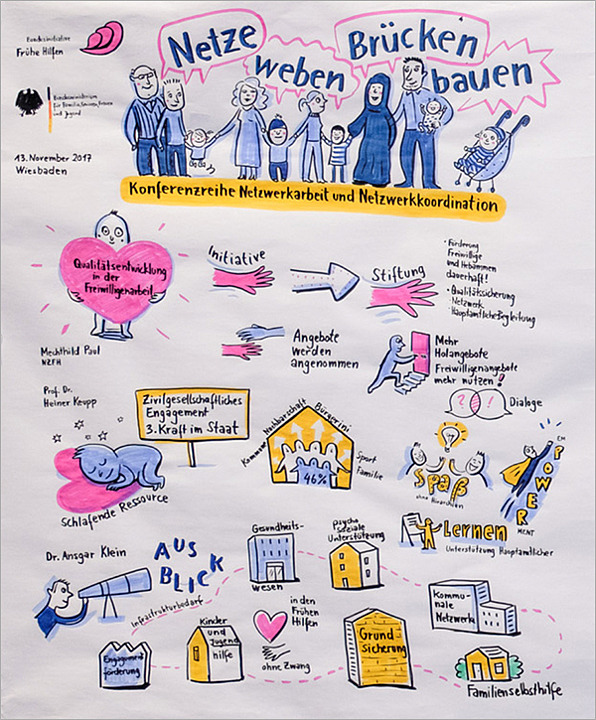 Bundesinitiative
Frühe Hilfen
Bundesministerium
für Familie, Senioren, Frauen
und Jugend
13. November 2017
Wiesbaden
Netze
weben
Brücken
bauen
Konferenzreihe Netzwerkarbeit und Netzwerkkoordination
Qualitätsentwicklung
in der
Freiwilligenarbeit
Mechthild Paul
NZFH
Initiative
Stiftung
· Förderung
Freiwillige
und Hebammen
dauerhaft!
· Qualitätssicherung
Netzwerk
· Hauptamtliche Begleitung
Angebote
werden
angenommen
Mehr
Holangebote
Freiwilligenangebote
mehr nutzen!
? !
Dialoge
Prof. Dr.
Heiner Keupp
Schlafende Ressource
Zivilgesellschaftliches
Engagement
3. Kraft im Staat
Kommune Nachbarschaft Bürgerini
Sport
Familie
46%
Spaß
ohne Hierarchien
EM
POWER
MENT
Lernen
Unterstützung Hauptamtlicher
Dr. Ansgar Klein
AUS
BLICK
Infrastrukturbedarf
Gesundheits-
wesen
Psycho
soziale
Unterstützung
Kommu-
nale
Netzwerke
Engagement
förderung
Kinder
und Jugend
hilfe
in den
Frühen
Hilfen
ohne Zwang
Grund
sicherung
Familienselbsthilfe